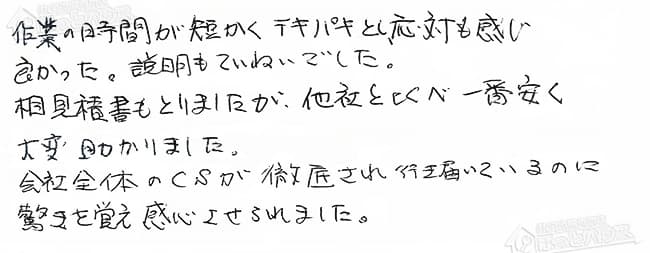 作業の時間が短かくテキパキとし応対も感じ
良かった。説明もていねいでした。
相見積書もとりましたが、他社と比べ一番安く
大変助かりました。
会社全体のCSが徹底され行き届いているのに
驚きを覚え感心させられました。